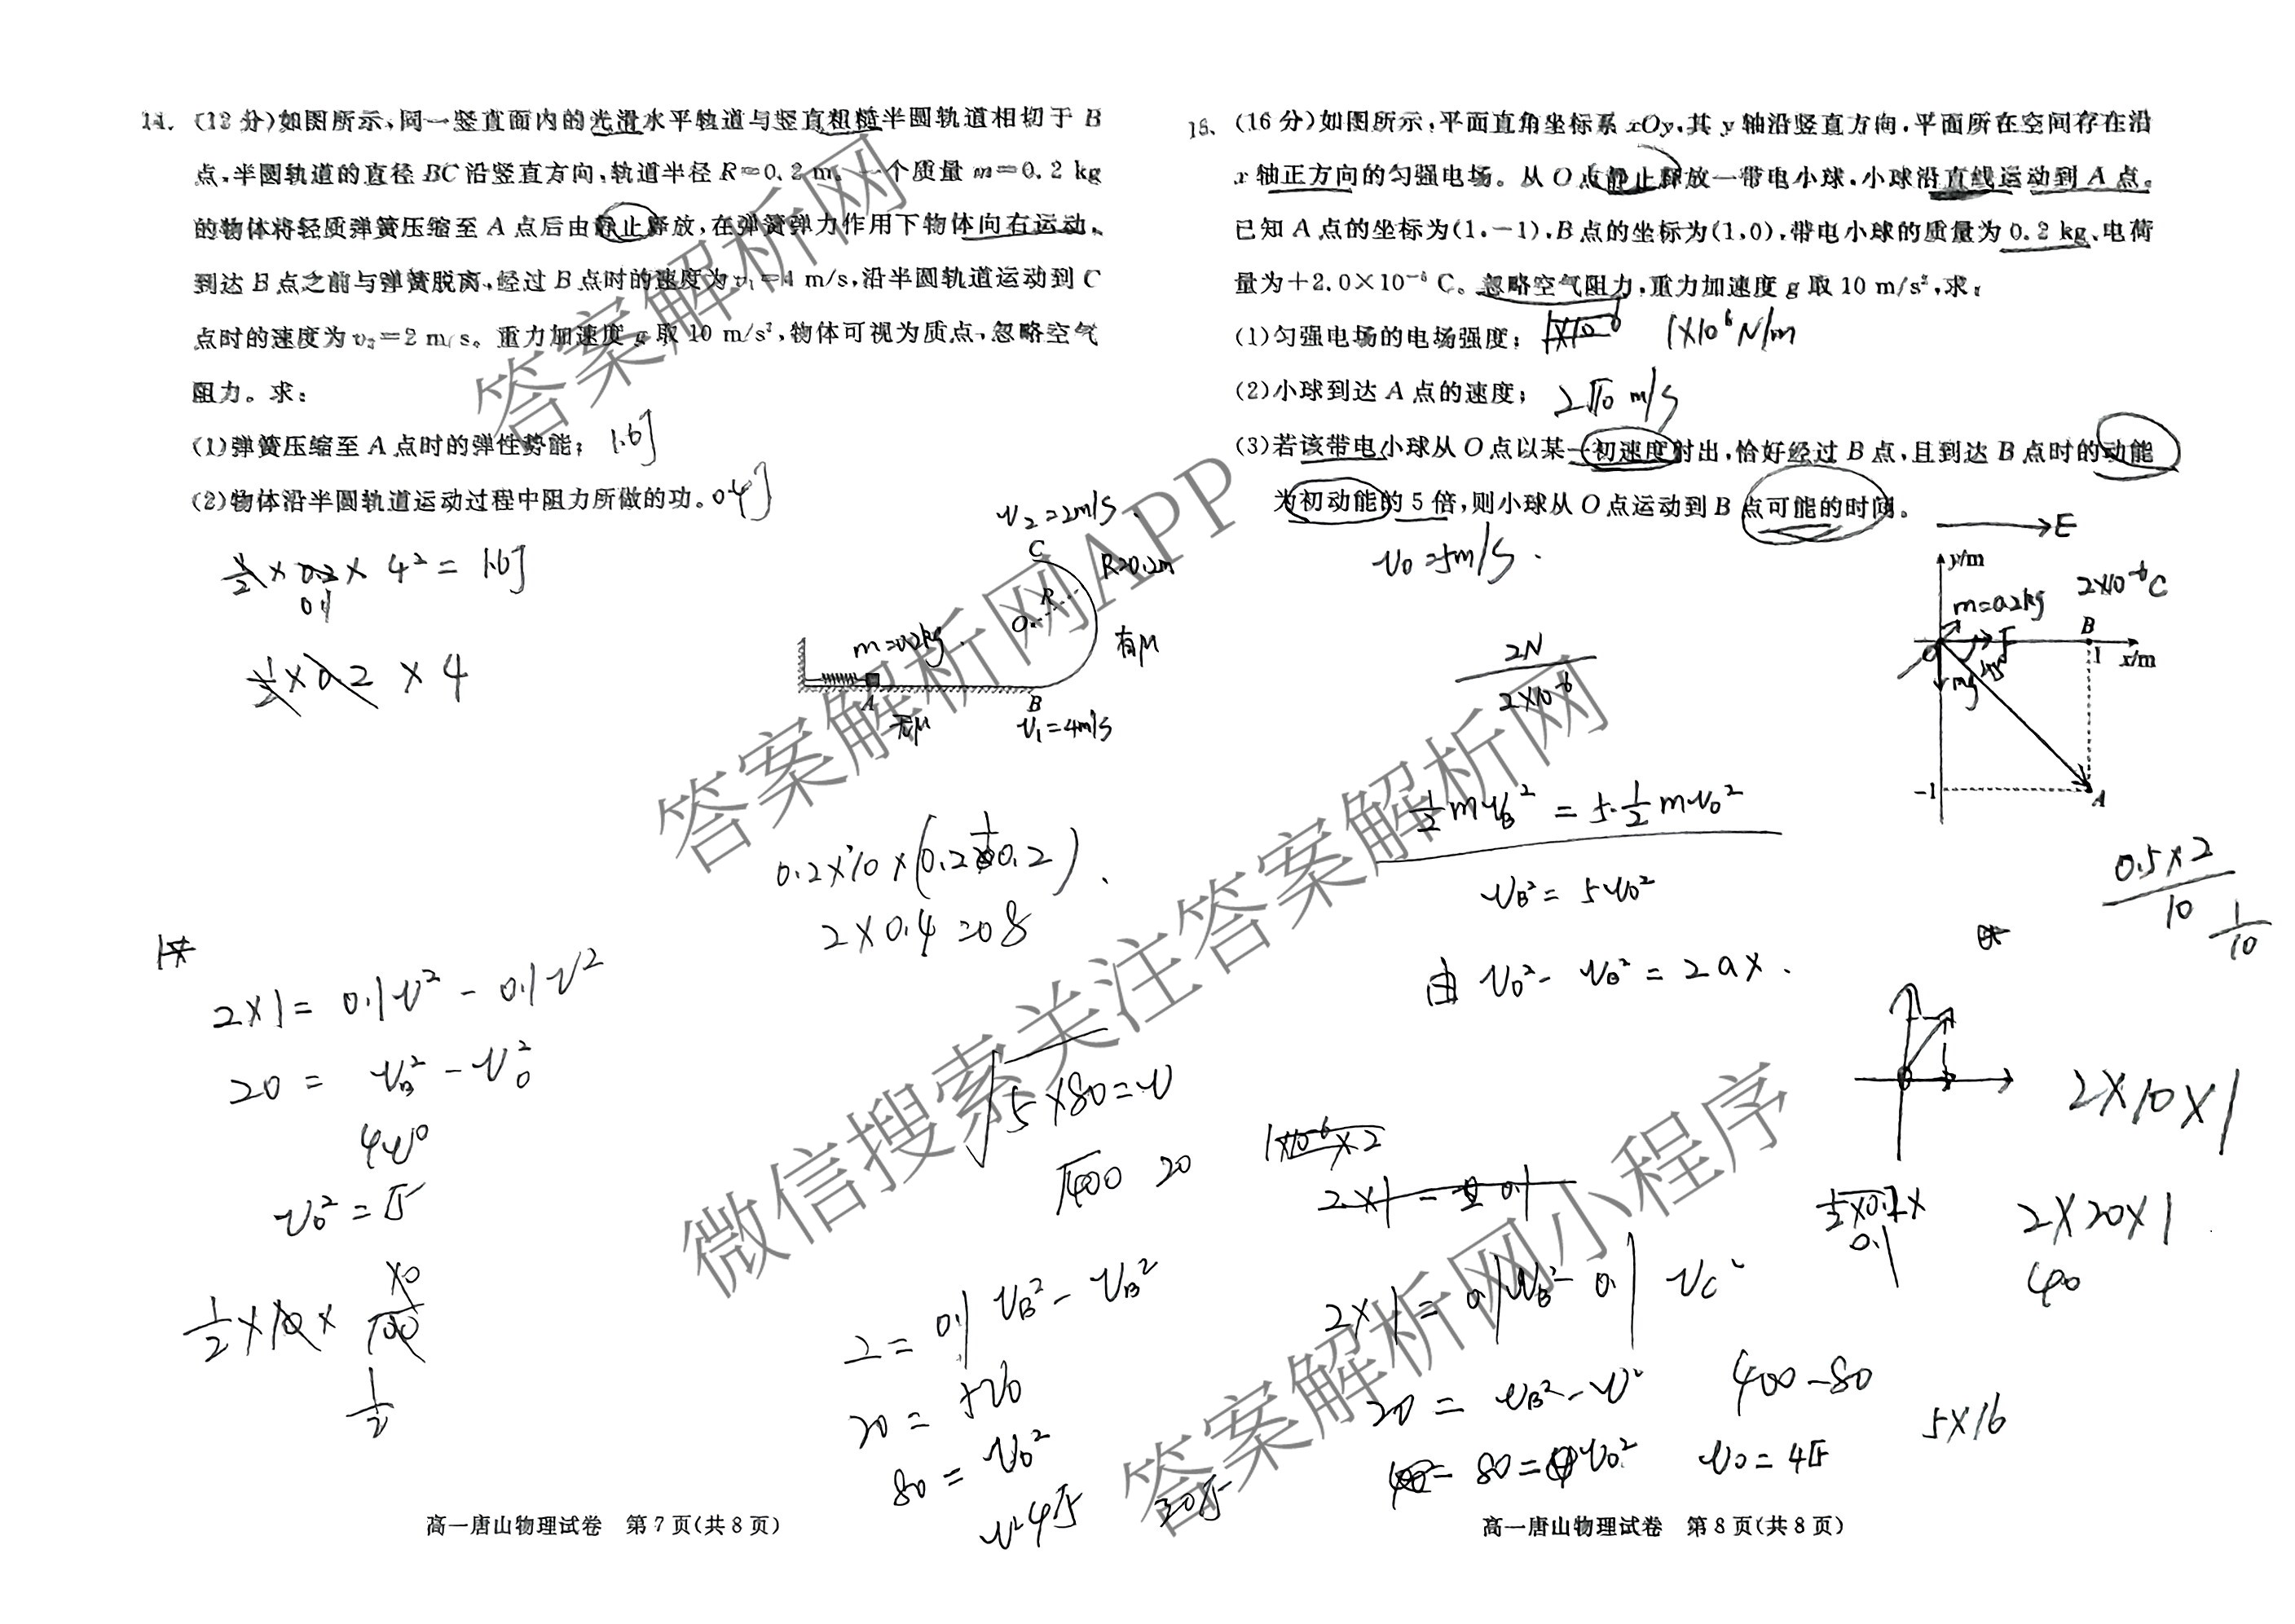 14. (12分)如图所示,同一竖直面内的光滑水平轨道与竖直粗糙半圆轨道相切于B
点,半圆轨道的直径BC沿竖直方向,轨道半径R=0.2 m。一个质量m=0.2 kg
的物体将轻质弹簧压缩至A点后由静止释放,在弹簧弹力作用下物体向右运动,
到达B点之前与弹簧脱离,经过B点时的速度为v₁=4 m/s,沿半圆轨道运动到C
点时的速度为v₂=2 m/s。重力加速度g取10 m/s²,物体可视为质点,忽略空气
阻力。求:
(1)弹簧压缩至A点时的弹性势能; 1.6J
(2)物体沿半圆轨道运动过程中阻力所做的功。0.4J
v₂=2m/s
C
R=0.2m
R
O
有μ
m=0.2kg
A
B
无μ
v₁=4m/s
½×0.2×4²=1.6J
0.1
½×0.2×4
2×0.4=0.8
2×1=0.1v²-0.1v²
20=v_B²-v₀²
v₀²=√5
½×10×
½
√5×80=v
√400 20
20=5v₀
80=v₀²
高一唐山物理试卷 第7页(共8页)
15. (16分)如图所示,平面直角坐标系xOy,其y轴沿竖直方向,平面所在空间存在沿
x轴正方向的匀强电场。从O点静止释放一带电小球,小球沿直线运动到A点。
已知A点的坐标为(1,-1),B点的坐标为(1,0),带电小球的质量为0.2 kg、电荷
量为+2.0×10⁻⁶ C。忽略空气阻力,重力加速度g取10 m/s²,求:
(1)匀强电场的电场强度; 1×10⁶N/m
(2)小球到达A点的速度; 2√10 m/s
(3)若该带电小球从O点以某一初速度射出,恰好经过B点,且到达B点时的动能
为初动能的5倍,则小球从O点运动到B点可能的时间。
v₀=5m/s.
E
y/m
2×10⁻⁶C
m=0.2kg
B
O
F
1
x/m
mg
-1
A
2N
2×10⁻⁶
½mv_B²=5·½mv₀²
v_B²=5v₀²
由 v₀²-v_B²=2ax.
0.5×2
10
1
10
2×10×1
1×10⁻⁶×2
2×20×1
0.1
400-80
20=v_B²-v²
5×16
v₀=4√5
高一唐山物理试卷 第8页(共8页)
答案解析网
答案解析网APP
微信搜索关注答案解析网
答案解析网小程序